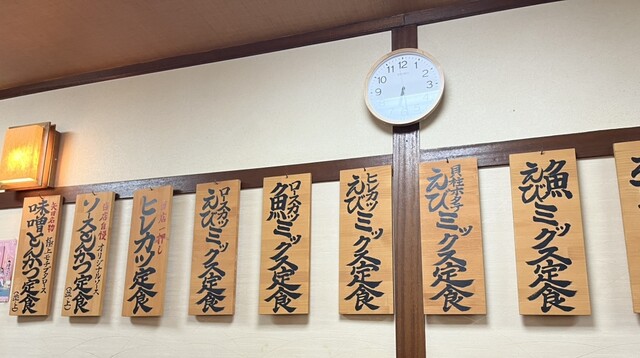 12
1
2
3
9
10
11
矢場名物
味噌とんかつ定食
(並上)
当店自慢
オリジナルソース
ソースとんかつ定食
(並上)
当店一押し
ヒレカツ定食
ロースカツ
えびミックス定食
ロースカツ
魚ミックス定食
ヒレカツ
えびミックス定食
貝柱ホタテ
えびミックス定食
魚
えびミックス定食